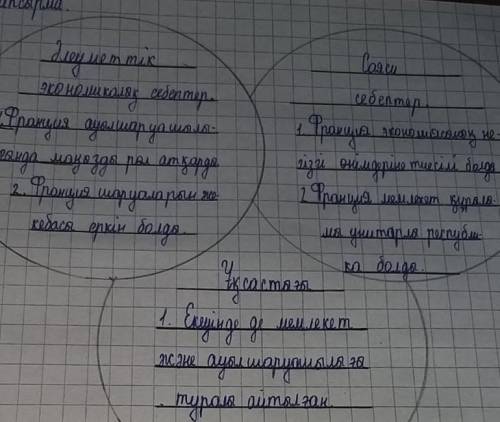 Әлеуметтік
экономикалық себептер.
1. Франция ауылшаруашылы-
ғында маңызды рөл атқарды
2. Франция шаруаларын же-
кебасы еркін болды.
Саяси
себептер.
1. Франция экономикасының не-
гізгі өнімдеріне тиесілі болды
2 Франция мемлекет құрылы-
мы унитарлы республи-
ка болды.
Ұқсастығы
1. Екеуінде де мемлекет
және ауылшаруашылығы
туралы айтылған.